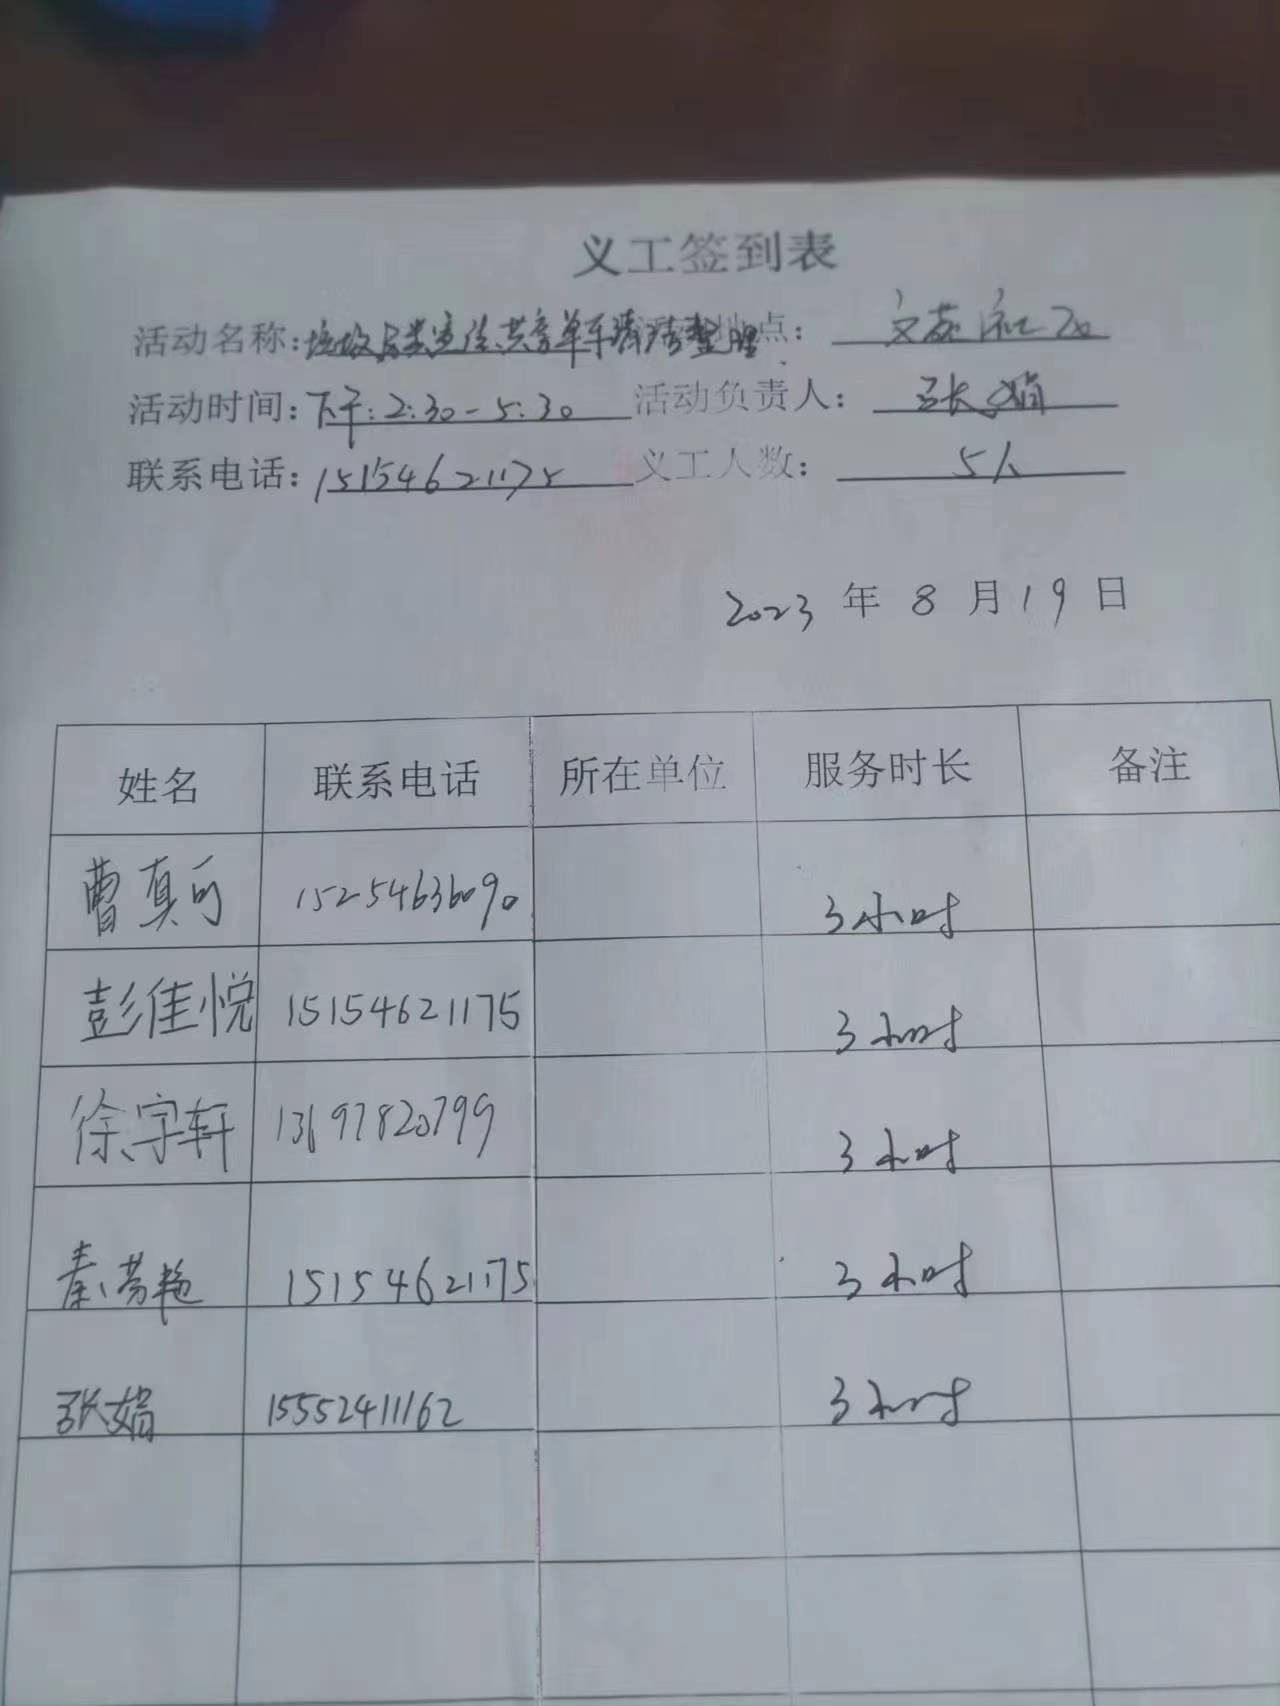 义工签到表
活动名称：垃圾分类宣传、共享单车清洁整理 地点： 文苑社区
活动时间：下午：2:30-5:30 活动负责人： 张娟
联系电话：15154621175 义工人数： 5人
2023 年 8 月 19 日
姓名 联系电话 所在单位 服务时长 备注
曹真可 15254636090 3小时
彭佳悦 15154621175 3小时
徐宇轩 13697820799 3小时
秦芳艳 15154621175 3小时
张娟 15552411162 3小时